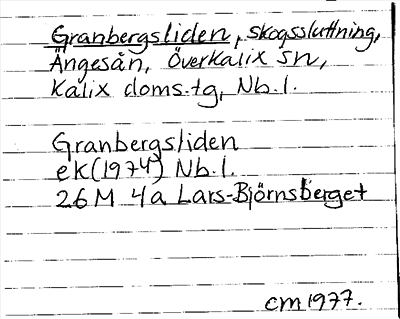 Granbergsliden, skogssluttning,
Ängesån, Överkalix sn,
Kalix doms.tg, Nb.l.
Granbergsliden
ek(1974) Nb.l.
26M 4a Lars-Björnsberget
cm 1977.